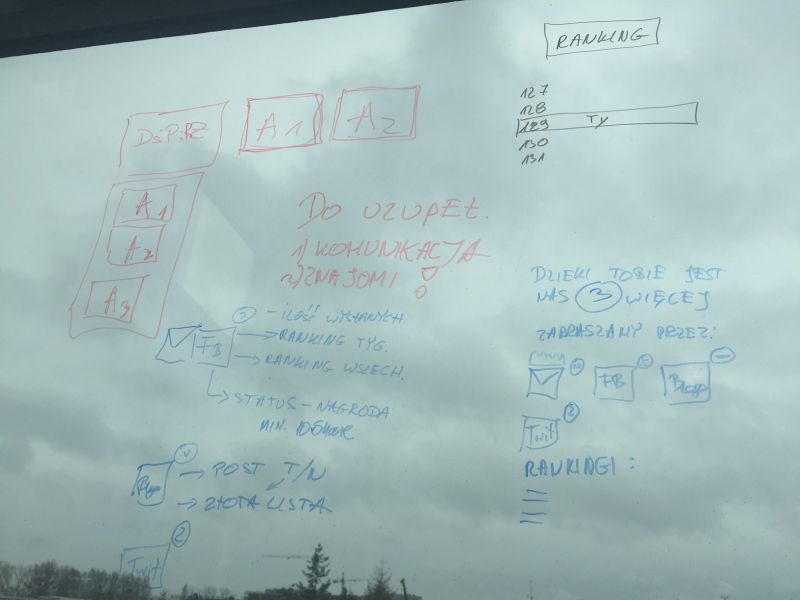 RANKING
127
128
129 Ty
130
131
A1
A2
A1
A2
A3
DO UZUPEŁ.
1) KOMUNIKACJA
2) ZNAJOMI
- ILOŚĆ WYSŁANYCH
FB
RANKING TYG.
RANKING WSZECH.
STATUS - NAGRODA
MIN.
POST T/N
ZŁOTA LISTA
2
Twit
DZIĘKI TOBIE JEST
NAS 3 WIĘCEJ
ZAPRASZAMY PRZEZ:
FB
Blogg
2
Twit
RANKINGI: